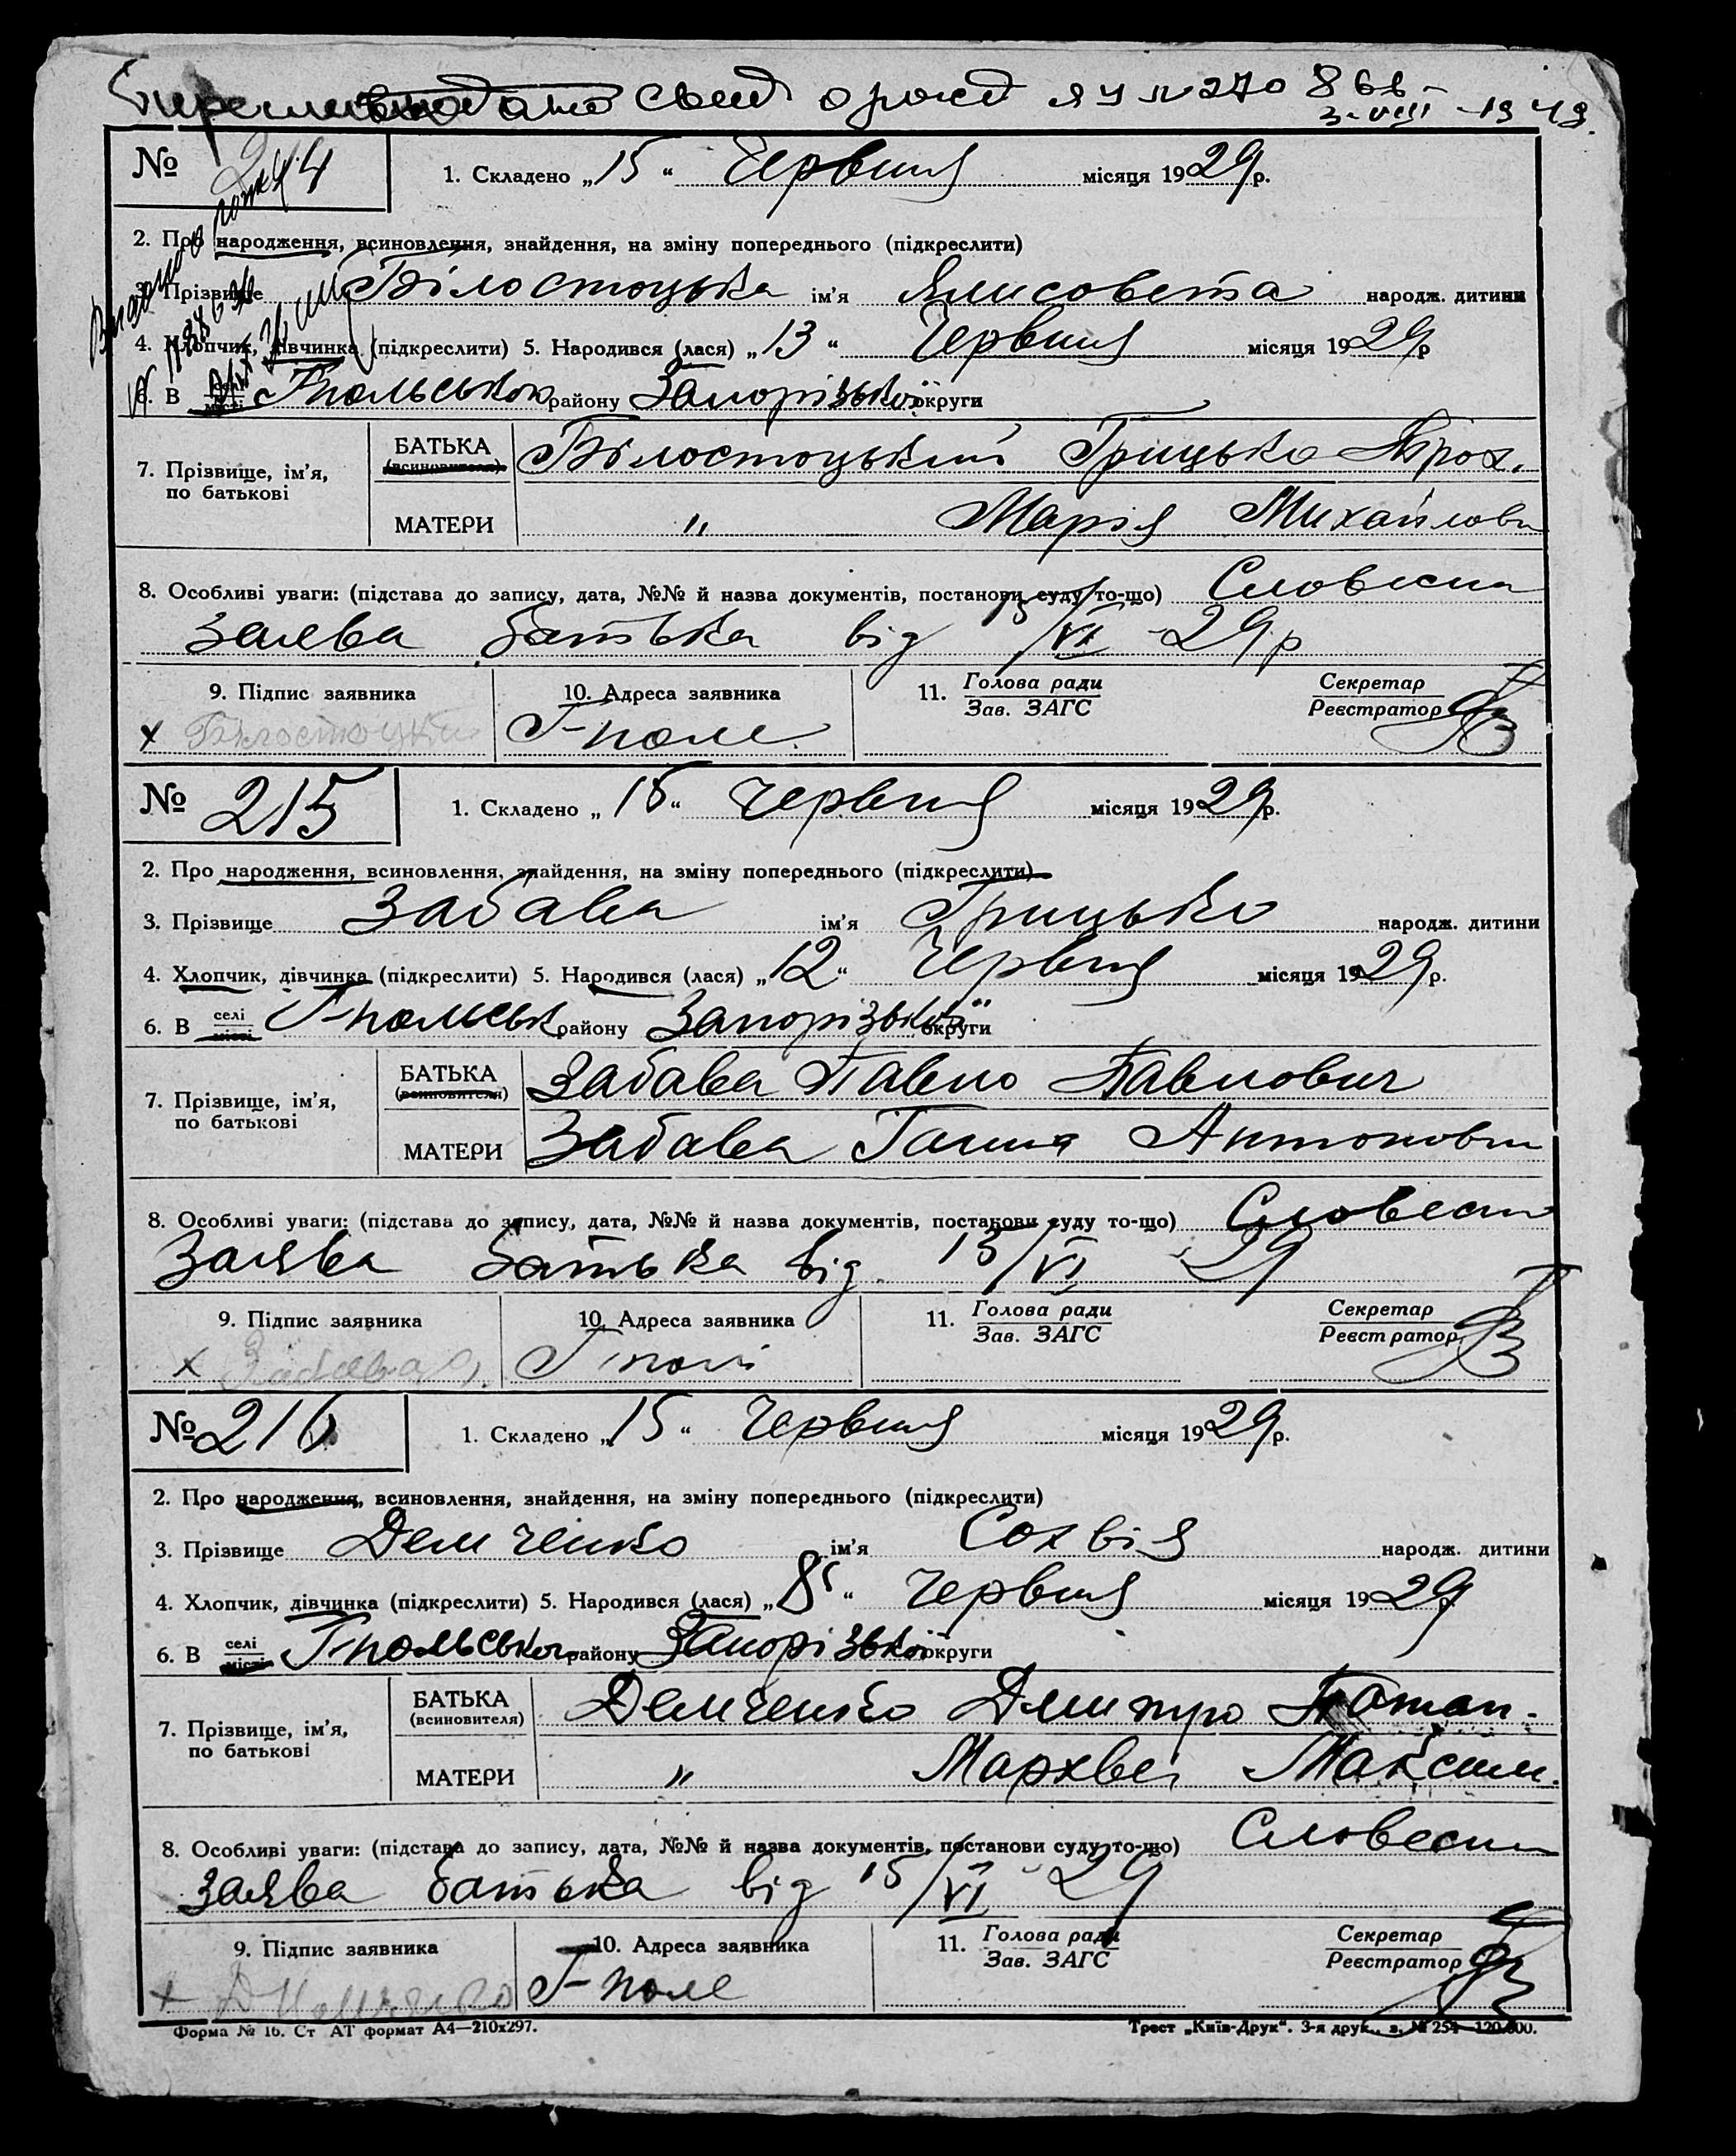 видано свид о рожд ЯУ № 270866-
3-VIII-1949.
№ 214 1. Складено „15“ Червня місяця 1929р.
2. Про народження, всиновлення, знайдення, на зміну попереднього (підкреслити)
3. Прізвище Білостоцька ім'я Єлисовета народж. дитини
4. Хлопчик, дівчинка (підкреслити) 5. Народився (лася) „13“ Червня місяця 1929р
6. В селі місті Г-польсько району Запорізької округи
7. Прізвище, ім'я, по батькові БАТЬКА (всиновителя) Білостоцький Грицько Трох.
МАТЕРИ „ Марія Михайловн
8. Особливі уваги: (підстава до запису, дата, №№ й назва документів, постанови суду то-що) Словесна
заява батька від 15/VI-29р
9. Підпис заявника 10. Адреса заявника 11. Голова ради Зав. ЗАГС Секретар Реєстратор
х Білостоцкий Г-поле
№ 215 1. Складено „15“ Червня місяця 1929р.
2. Про народження, всиновлення, знайдення, на зміну попереднього (підкреслити)
3. Прізвище Забава ім'я Грицько народж. дитини
4. Хлопчик, дівчинка (підкреслити) 5. Народився (лася) „12“ Червня місяця 1929р.
6. В селі місті Г-польськ району Запорізької округи
7. Прізвище, ім'я, по батькові БАТЬКА (всиновителя) Забава Павло Павлович
МАТЕРИ Забава Ганна Антоновн
8. Особливі уваги: (підстава до запису, дата, №№ й назва документів, постанови суду то-що) Словесн
Заява батька від 15/VI-29
9. Підпис заявника 10. Адреса заявника 11. Голова ради Зав. ЗАГС Секретар Реєстратор
х Забава Г-полі
№ 216 1. Складено „15“ Червня місяця 1929р.
2. Про народження, всиновлення, знайдення, на зміну попереднього (підкреслити)
3. Прізвище Демченко ім'я Сохвія народж. дитини
4. Хлопчик, дівчинка (підкреслити) 5. Народився (лася) „8“ Червня місяця 1929р.
6. В селі місті Г-польсько району Запорізької округи
7. Прізвище, ім'я, по батькові БАТЬКА (всиновителя) Демченко Дмитро Потап.
МАТЕРИ „ Мархва Максим.
8. Особливі уваги: (підстава до запису, дата, №№ й назва документів, постанови суду то-що) Словесн
заява батька від 15/VI-29
9. Підпис заявника 10. Адреса заявника 11. Голова ради Зав. ЗАГС Секретар Реєстратор
Г-поле
Форма № 16. Ст АТ формат А4—210х297. Трест „Київ-Друк“. 3-я друк., з. № 254—120.000.